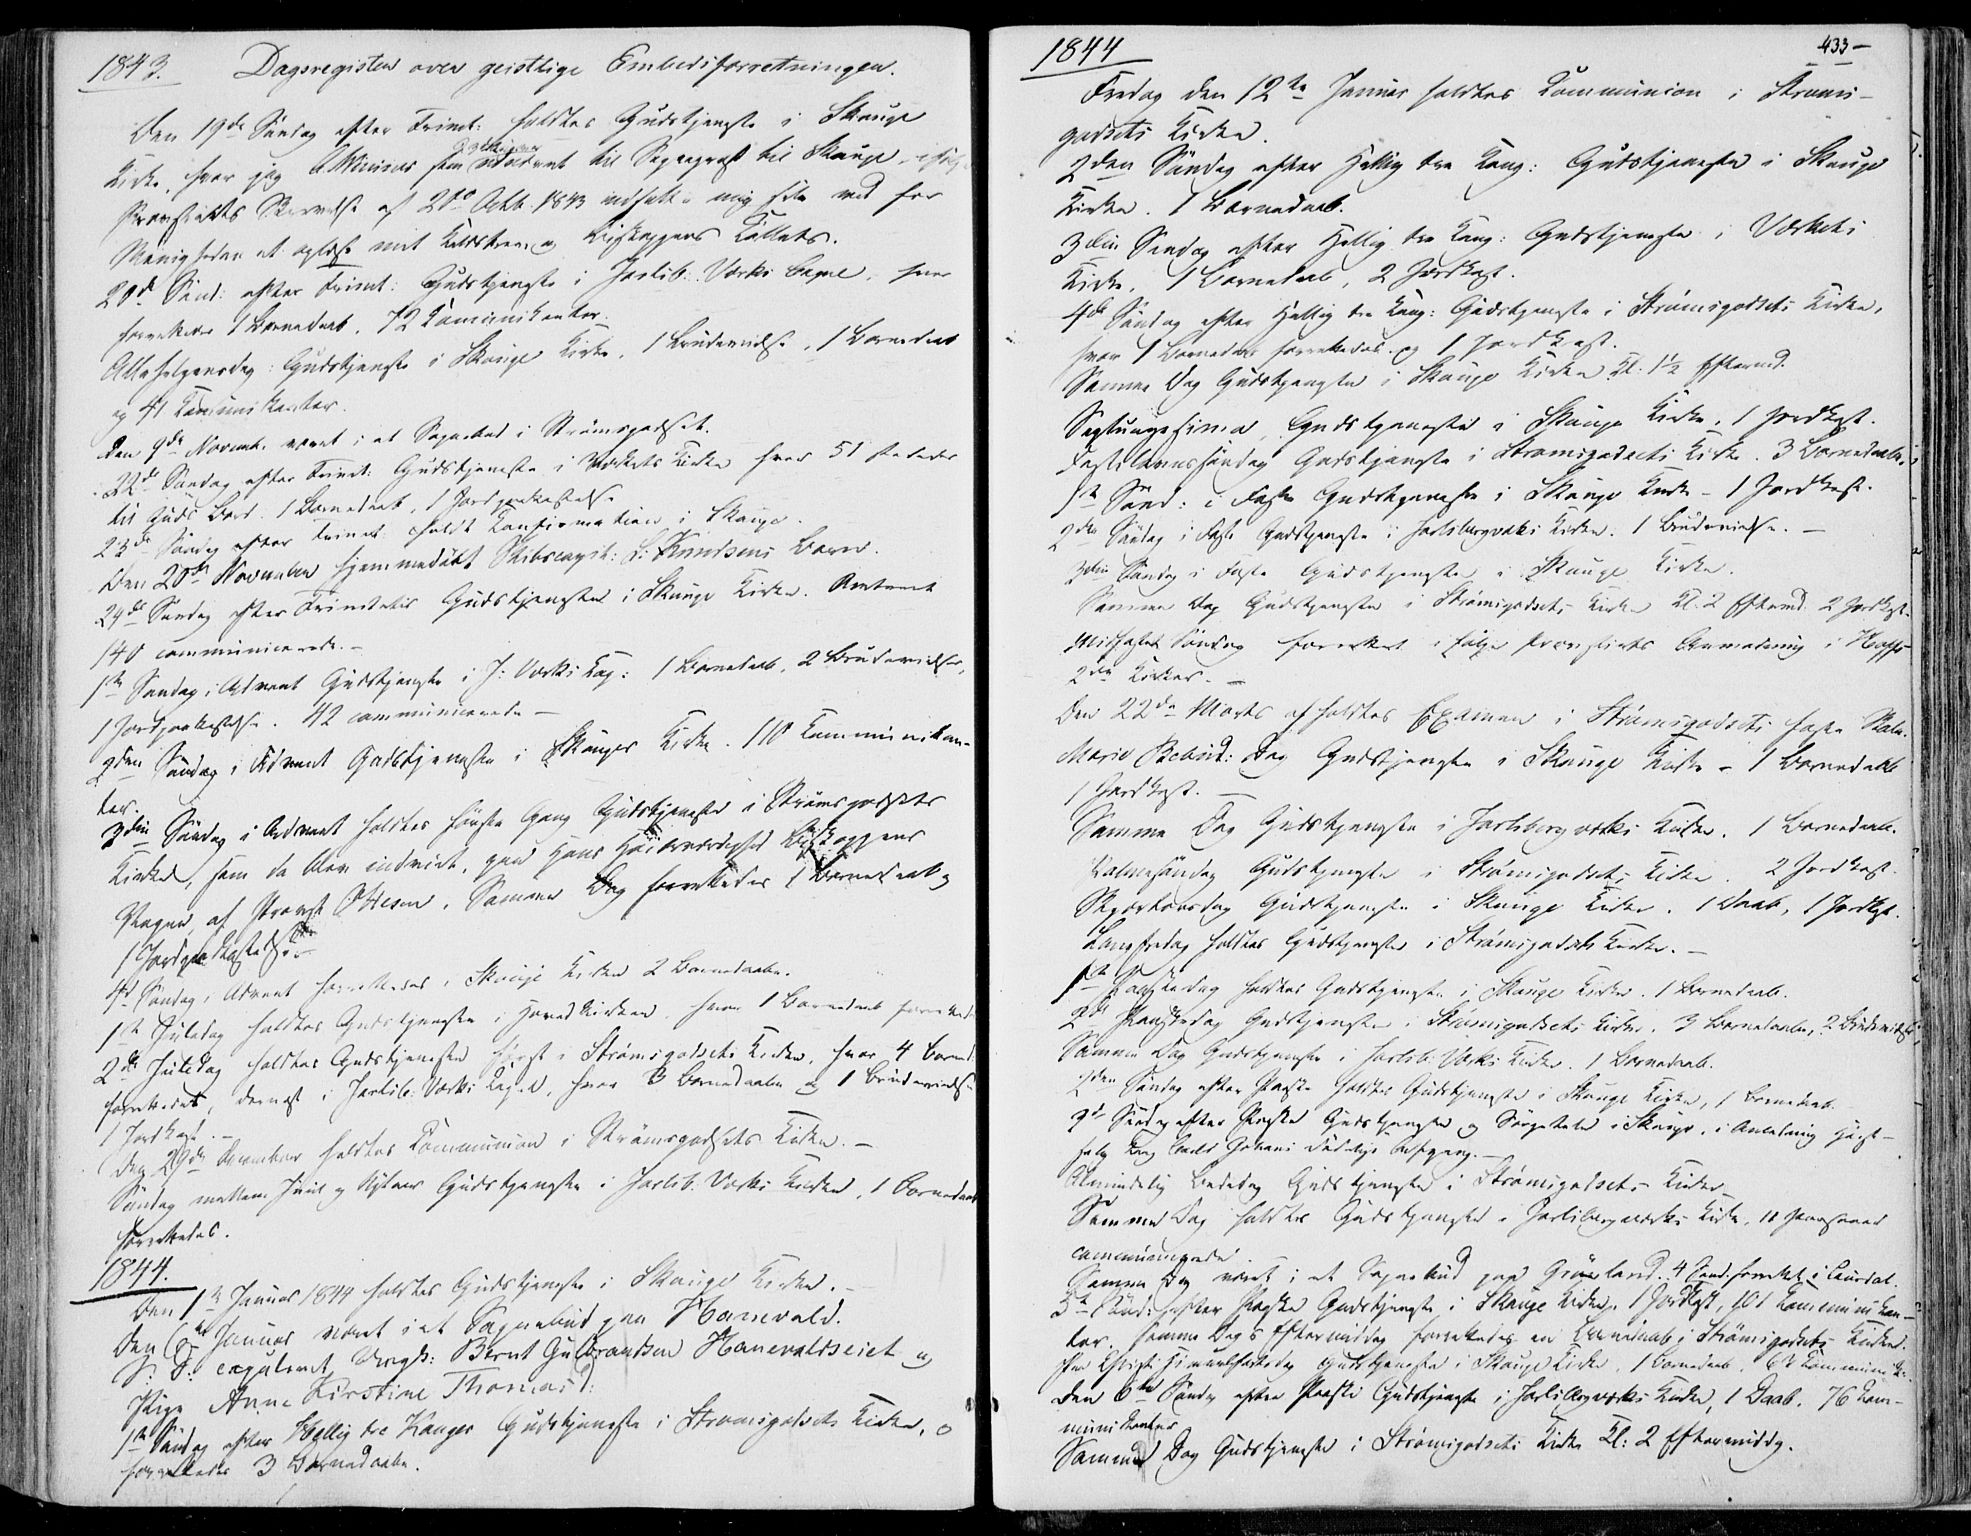 1843. Dagsregister over geistlige Embedsforretninger.
Den 19de Søndag efter Trinit: holdtes Gudstjeneste i Skouge
Kirke, hvor jeg til Sognepræst til Skouge
Provstiets Skrivelse af 21de Octb. 1843 indsatte mig selv ved for
Menigheden at oplæse mit Kaldsbrev og Biskoppens Collats.
20de Sønd: efter Trinit: Gudstjeneste i Jarlsb: Værks Capel, hvor
forrettedes 1 Barnedaab, 72 Communikanter.
Allehelgensdag: Gudstjeneste i Skouge Kirke, 1 Brudevielse, 1 Barnedaab
og 41 Communikanter.
Den 9de Novemb. været i et Sognebud i Strømsgodset.
22de Søndag efter Trinit: Gudstjeneste i Værkets Kirke hvor 51 stededes
til Guds Bord. 1 Barnedaab, 1 Jordpaakastelse
23de Søndag efter Trinit: holdt Confirmation i Skouge.
Den 20de November hjemmedøbt Skibscapit: L: Knudsens Barn.
24de Søndag efter Trinitatis Gudstjeneste i Skouge Kirke. Omtrent
140 communicerede. –
1ste Søndag i Advent Gudstjeneste i J: Værks Cap: 1 Barnedaab, 2 Brudevielser,
1 Jordpaakastelse. 42 communicerede –
2den Søndag i Advent Gudstjeneste i Skouger Kirke. 110 Communikan-
ter.
3die Søndag i Advent holdtes første Gang Gudstjeneste i Strømsgodsets
Kirke, som da blev indviet, paa Hans Høiærværdighed Biskoppens
Vegne, af Provst Ottesen. Samme Dag forrettedes 1 Barnedaab og
1 Jordpaakastelse. –
4de Søndag i Advent forrettedes i Skouge Kirke 2 Barnedaabe.
1ste Juledag holdtes Gudstjeneste i Hovedkirken, hvor 1 Barnedaab forrettedes
2de Juledag holdtes Gudstjeneste først i Strømsgodsets Kirke, hvor 4 Barned.
forrettedes, dernæst i Jarlsb: Værks Capel, hvor 3 Barnedaabe og 1 Brudevielse
1 Jordkast. –
Den 29de December holdtes Communion i Strømsgodsets Kirke. –
Søndag mellem Juul og Nytaar Gudstjeneste i Jarlsb: Værks Kirke, 1 Barnedaab
forrettedes.
1844.
Den 1ste Januar 1844 holdtes Gudstjeneste i Skouge Kirke. –
Den 6te Januar været i et Sognebud paa Hanevold.
S: D: copuleret Ungk: Bernt Gulbrandsen Hanevoldseiet og
Pige Anne Kirstine Thomasd:
1ste Søndag efter Hellig tre Konger Gudstjeneste i Strømsgodsets Kirke,
forrettedes 3 Barnedaabe.
1844 433–
Fredag den 12te Januar holdtes Communion i Strøms-
godsets Kirke.
2den Søndag efter Hellig tre Kong: Gudstjeneste i Skouge
Kirke. 1 Barnedaab.
3die Søndag efter Hellig tre Kong: Gudstjeneste i Værkets
Kirke, 1 Barnedaab, 2 Jordkast.
4de Søndag efter Hellig tre Kong: Gudstjeneste i Strømsgodsets Kirke,
hvor 1 Barnedaab forrettedes og 1 Jordkast.
Samme Dag Gudstjeneste i Skouge Kirke Kl. 1½ Eftermd.
Septuagesima, Gudstjeneste i Skouge Kirke, 1 Jordkast.
Fastelavnssøndag Gudstjeneste i Strømsgodsets Kirke. 3 Barnedaabe.
1ste Sønd: i Faste Gudstjeneste i Skouge Kirke – 1 Jordkast.
2den Søndag i Faste Gudstjeneste i Jarlsbergværks Kirke. 1 Brudevielse. –
3die Søndag i Faste Gudstjeneste i Skouge Kirke.
Samme Dag Gudstjeneste i Strømsgodsets Kirke Kl. 2 Eftermd. 2 Jordkast.
Midfaste Søndag forrettet i følge Provstiets Anmodning i
2de Kirker. –
Den 22de Marts afholdtes Examen i Strømsgodsets faste Skole.
Marie Bebud: Dag Gudstjeneste i Skouge Kirke – 1 Barnedaab
1 Jordkast. –
Samme Dag Gudstjeneste i Jarlsbergværks Kirke. 1 Barnedaab.
Palmesøndag Gudstjeneste i Strømsgodsets Kirke. 2 Jordkast.
Skjærtorsdag Gudstjeneste i Skouge Kirke. 1 Daab, 1 Jordkst.
Langfredag holdtes Gudstjeneste i Strømsgodsets Kirke. –
1ste Paaskedag holdtes Gudstjeneste i Skouge Kirke. 1 Barnedaab.
2den Paaskedag Gudstjeneste i Strømsgodsets Kirke. 3 Barnedaabe, 2 Brudevielser
Samme Dag Gudstjeneste i Jarlsb: Værks Kirke. 1 Barnedaab.
Søndag efter Paaske holdtes Gudstjeneste i Skouge Kirke, 1 Barnedaab.
Søndag efter Paaske Gudstjeneste og Sørgetale i Skouge, i Anledning Høist-
salig Kong Carl Johans dødelige Afgang. –
Almindelig Bededag Gudstjeneste i Strømsgodsets Kirke
Samme Dag holdtes Gudstjeneste i Jarlsbergværks Kirke, 11 Personer
communicerede.
Samme Dag været i et Sognebud paa Grønland. 4 Sønd. forrettet i
5te Sønd: efter Paaske Gudstjeneste i Skouge Kirke. 1 Jordkast, 101 Communikan-
ter. Samme Dags Eftermiddag forrettedes en Barnedaab i Strømsgodsets Kirke.
Christi Himmelfartsdag Gudstjeneste i Skouge Kirke, 1 Barnedaab,
Den 6te Sønd. efter Paaske Gudstjeneste i Jarlsbergværks Kirke, 1 Daab. 76 Com-
munikanter
Samme Dag Gudstjeneste i Strømsgodsets Kirke Kl: 2 Eftermiddg.